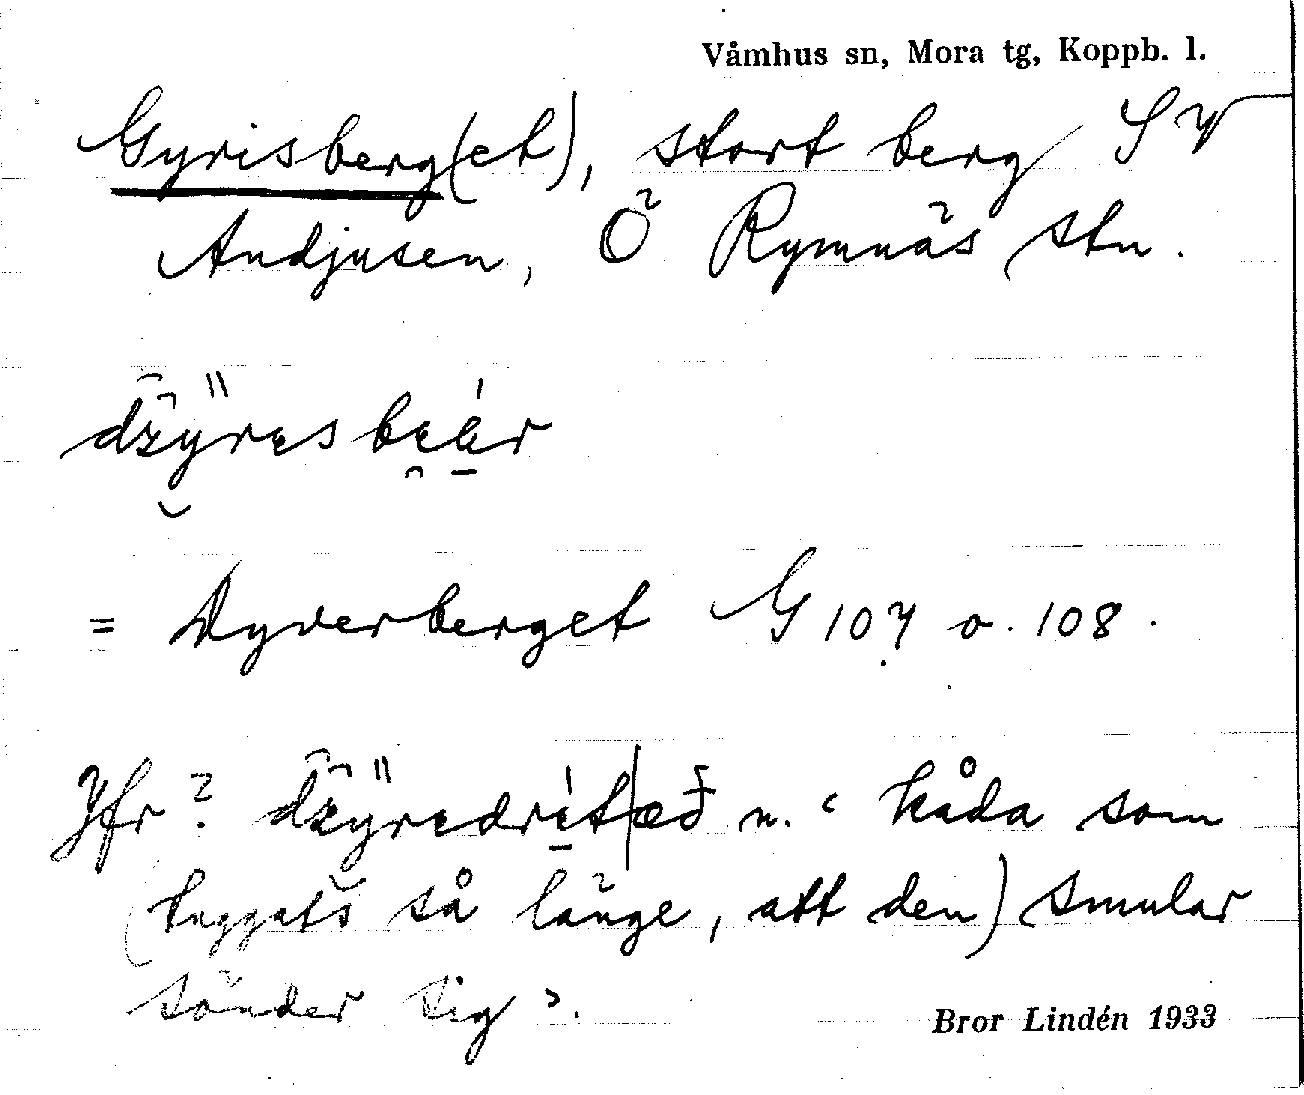 Våmhus sn, Mora tg, Koppb. l.
Gyrisberg(et), stort berg SV
Andjusen, Ö Rymnäs stn.
dʒyresbeár
= Dyverberget G 107 o. 108.
Jfr? dʒyredrít|æð n. ‘kåda som
(tuggats så länge, att den) smular
sönder sig’.
Bror Lindén 1933